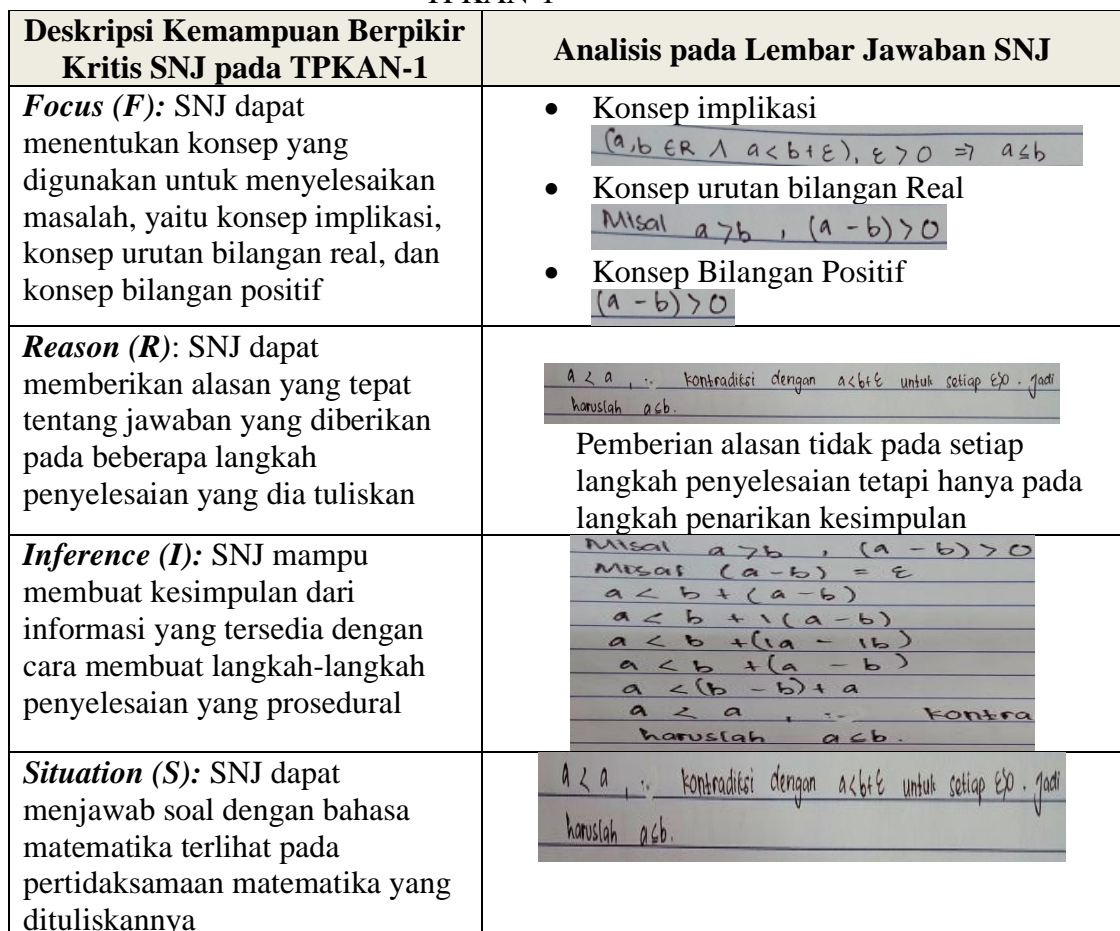 Deskripsi Kemampuan Berpikir
Kritis SNJ pada TPKAN-1
Analisis pada Lembar Jawaban SNJ
Focus (F): SNJ dapat
menentukan konsep yang
digunakan untuk menyelesaikan
masalah, yaitu konsep implikasi,
konsep urutan bilangan real, dan
konsep bilangan positif
• Konsep implikasi
(a,b ∈ R ∧ a < b + ε), ε > 0 ⇒ a ≤ b
• Konsep urutan bilangan Real
Misal a > b , (a - b) > 0
• Konsep Bilangan Positif
(a - b) > 0
Reason (R): SNJ dapat
memberikan alasan yang tepat
tentang jawaban yang diberikan
pada beberapa langkah
penyelesaian yang dia tuliskan
a < a , ∴ kontradiksi dengan a < b + ε untuk setiap ε > 0 . Jadi
haruslah a ≤ b.
Pemberian alasan tidak pada setiap
langkah penyelesaian tetapi hanya pada
langkah penarikan kesimpulan
Inference (I): SNJ mampu
membuat kesimpulan dari
informasi yang tersedia dengan
cara membuat langkah-langkah
penyelesaian yang prosedural
Misal a > b , (a - b) > 0
Misal (a - b) = ε
a < b + (a - b)
a < b + 1(a - b)
a < b + (1a - 1b)
a < b + (a - b)
a < (b - b) + a
a < a , ∴ kontra
haruslah a ≤ b.
Situation (S): SNJ dapat
menjawab soal dengan bahasa
matematika terlihat pada
pertidaksamaan matematika yang
dituliskannya
a < a , ∴ kontradiksi dengan a < b + ε untuk setiap ε > 0 . Jadi
haruslah a ≤ b.